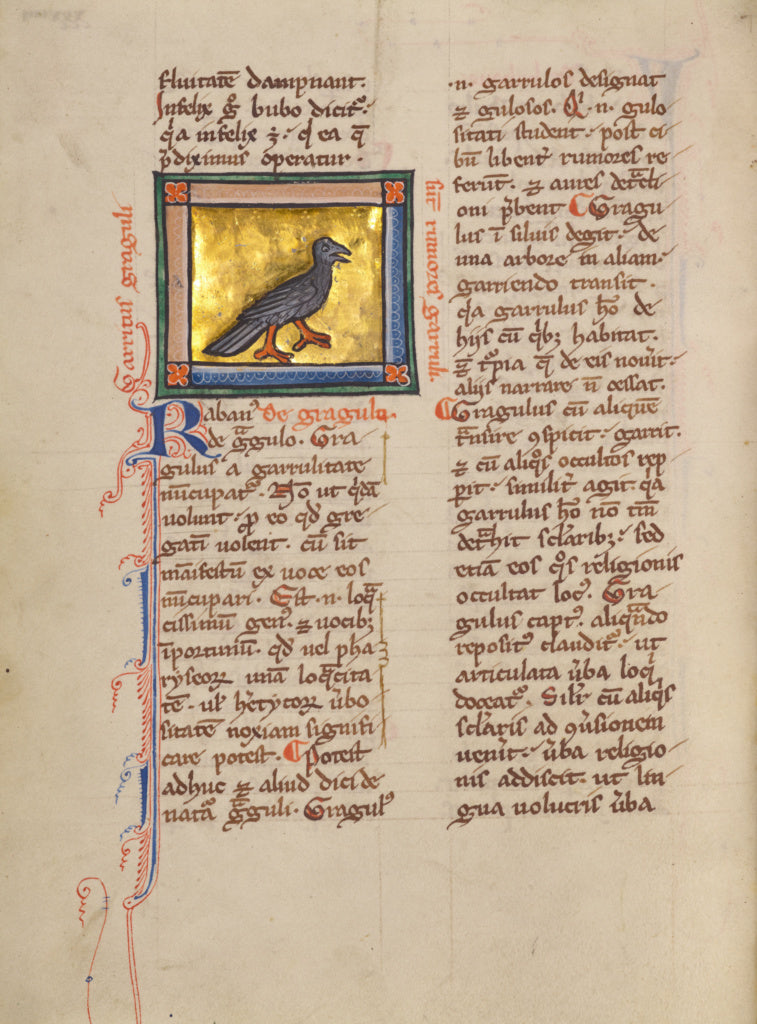 fluitatē dampnant.
Infelix g̃ bubo dicit᷑.
q̇a infelix ꝫ. ꝗ ea q̄
p̄diximus operatur.
Garritus graguli
sūt rumores garruli.
Rabanꝰ De gragulo.
de g̊gulo. Gra
gulus a garrulitate
nūcupat᷑. Nō ut q̇dā
uolunt. ꝓ eo qd̓ gre
gatī uolent. cū sit
māifestū ex uoce eos
nūcupari. Est .n. loq̊
cissimū genꝰ. ⁊ uocibꝫ
īportunū. qd̓ uel pha
ryseoꝝ uanā loq̊cita
tē. ul̓ h̓etycoꝝ ūbo
sitatē noxiam signifi
care potest. Potest
adhuc ⁊ aliud dici de
natã g̊guli. Gragulꝰ
.n. garrulos designat
⁊ gulosos. Qͥ .n. gulo
sitati student. post ci
bū libent᷑ rumores re
ferūt. ⁊ aures det̊cti
oni p̄bent Gragu
lus ī siluis degit. de
una arbore in aliam
garriendo transit.
q̇a garrulus h̊o de
hijs cū q̇bꝫ habitat.
⁊ t᷑pia q̄ de eis nouit.
alijs narrare ñ cessat.
Gragulus cū aliquē
t̊nsire ꝯspicit. garrit.
⁊ cū aliq̊s occultos rep
perit. similit᷑ agit. q̇a
garrulus h̊o nō tm̄
det̊hit sclaribꝫ. sed
etiā eos q̊s religionis
occultat locꝰ. Gra
gulus captꝰ. aliqñdo
repositꝰ claudit᷑. ut
articulata ūba loqͥ
doceat᷑. Silr̓ cū aliq̇s
sclaris ad ꝯūsionem
uenit. ūba religio
nis addiscit. ut lin
gua uolucris ūba